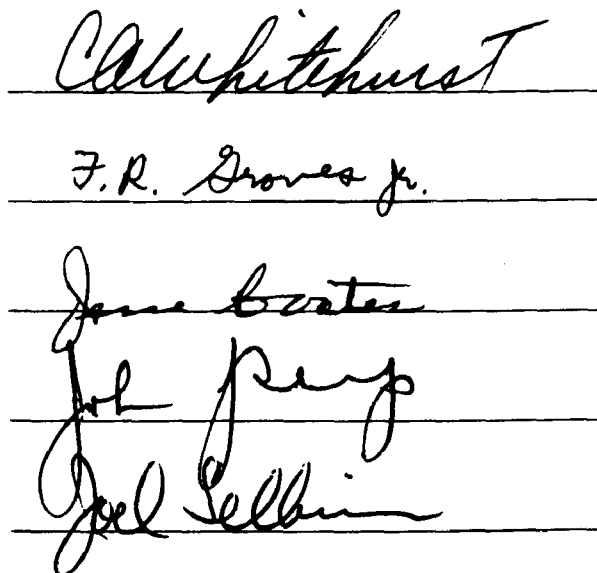 C A Whitehurst
F. R. Groves Jr.
Jesse Coates
Joel Selbin